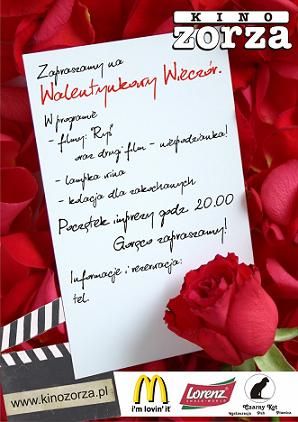 KINO
zorza
Zapraszamy na
Walentynkowy Wieczór.
W programie
- filmy: "Ryś"
oraz drugi film - niespodzianka!
- lampka wina
- kolacja dla zakochanych
Początek imprezy godz 20.00
Gorąco zapraszamy!
Informacje i rezerwacja:
tel.
www.kinozorza.pl
i'm lovin' it
Lorenz
SNACK-WORLD
Czarny Kot
Restauracja Pub Pizzeria